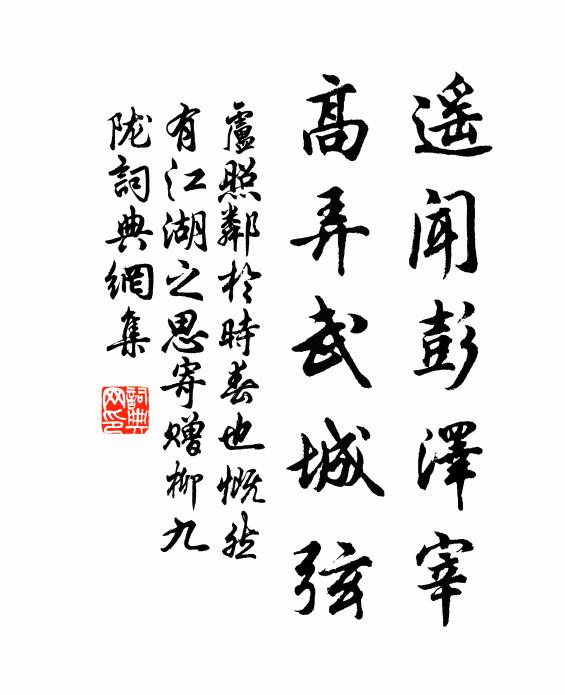 遥聞彭澤宰
高弄武城弦
盧照鄰於時春也慨然
有江湖之思寄贈柳九
陇詞典網集
詞典網印